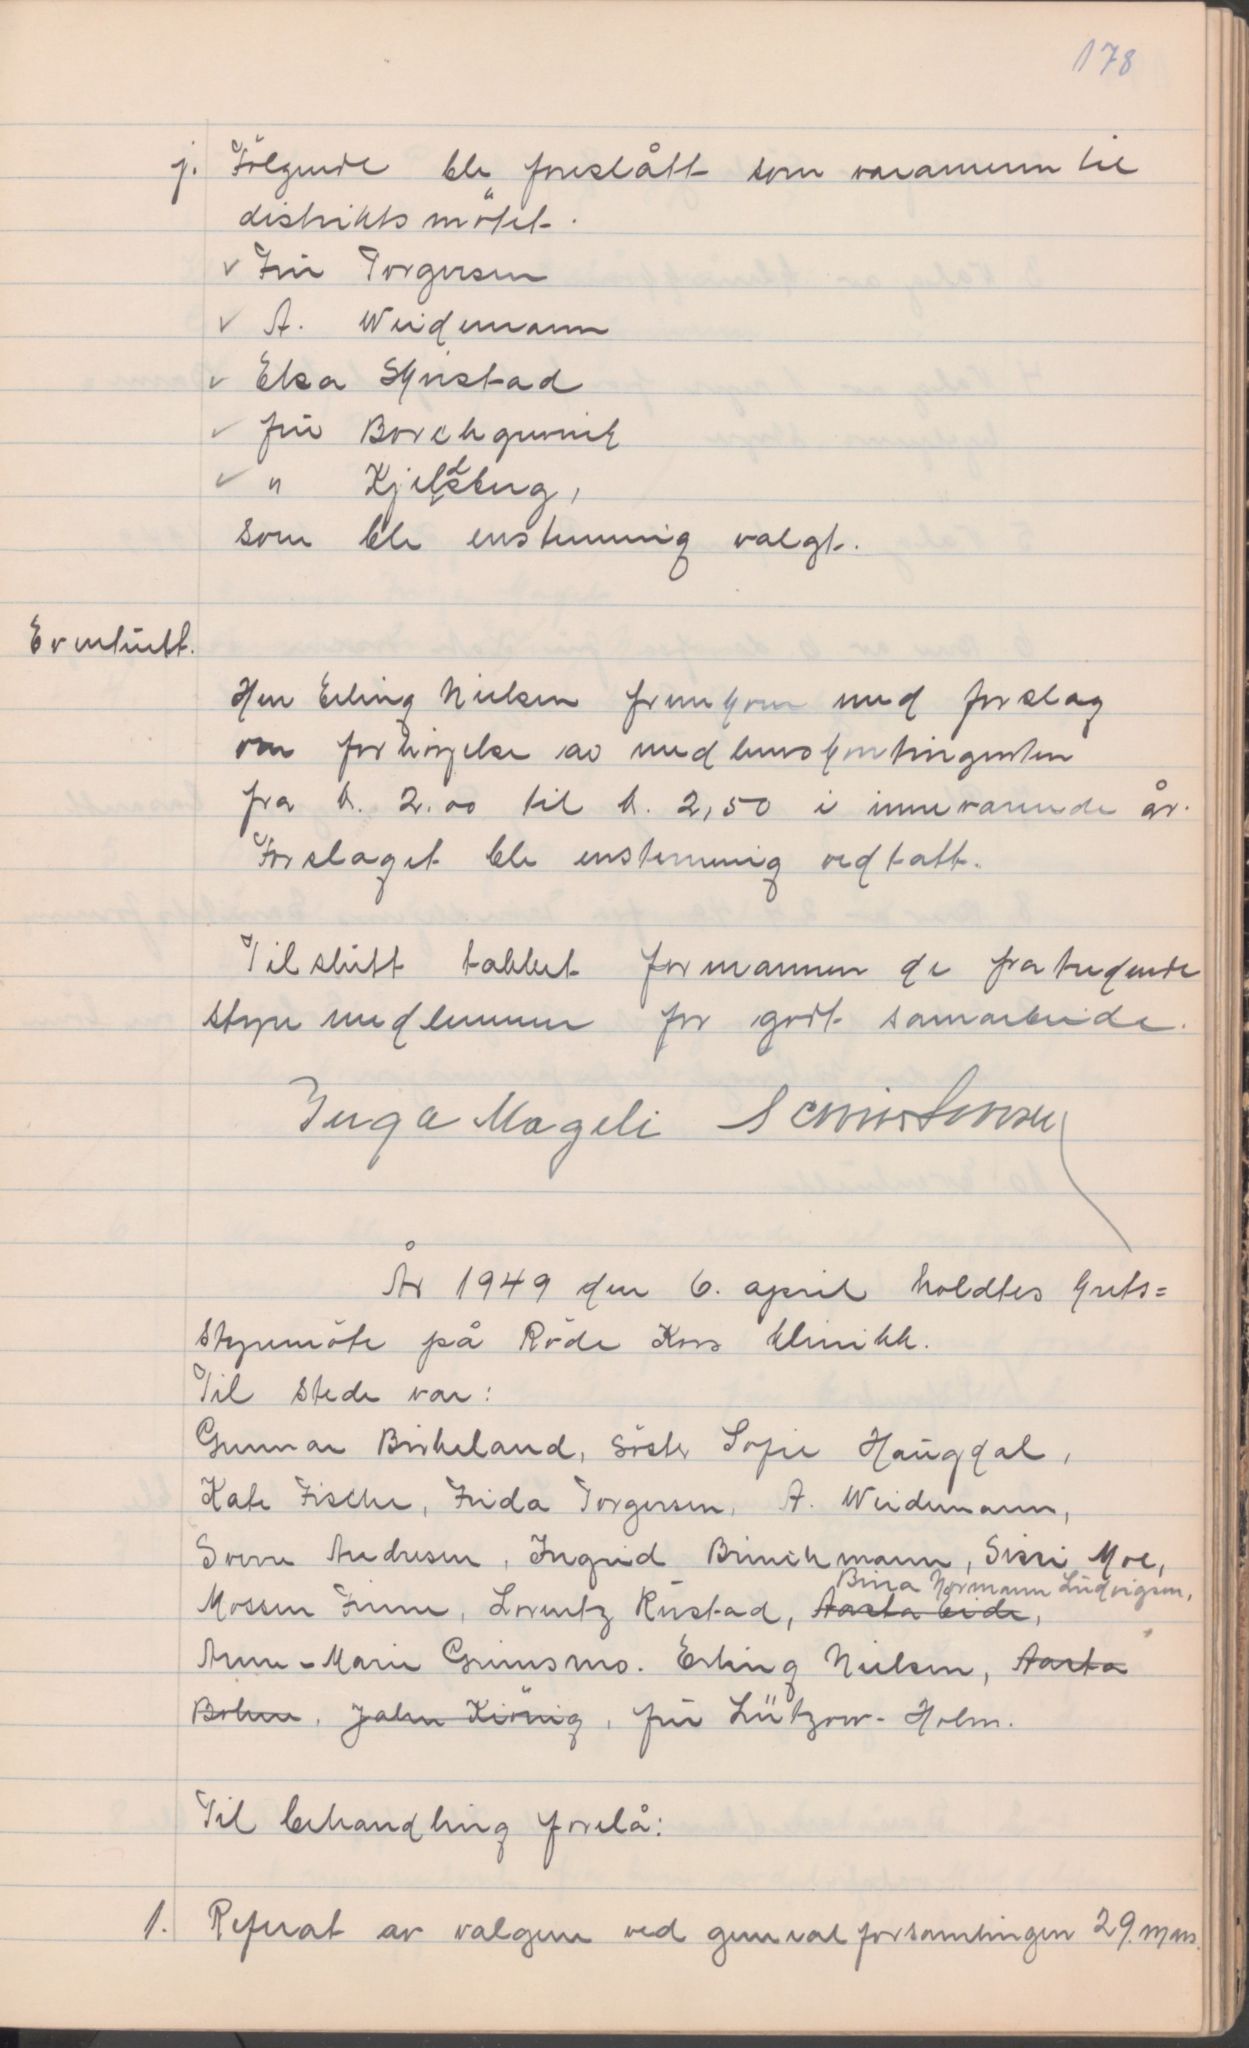 178
j. Følgende ble foreslått som varamenn til
distriktsmøtet.
✓ Fru Torgersen
✓ A. Weidemann
✓ Elsa Skjristad
✓ fru Borchgrevink
✓ " Kjelsberg,
som ble enstemmig valgt.
Eventuelt.
Herr Erling Nielsen fremkom med forslag
om forhøyelse av medlemskontingenten
fra k. 2.00 til k. 2,50 i inneværende år.
Forslaget ble enstemmig vedtatt.
Til slutt takket formannen de fratredende
styremedlemmer for godt samarbeide.
Inga Mageli
År 1949 den 6. april holdtes krets=
styremøte på Røde Kors klinikk.
Til stede var:
Gunnar Birkeland, søster Sofie Haugdal,
Kate Fischer, Frida Torgersen, A. Weidemann,
Sverre Andresen, Ingrid Brinchmann, Sissi Moe,
Bina Normann Ludvigsen,
Mossen Finne, Lorentz Rustad, Aasta Eide,
Anne-Marie Grinsmo. Erling Nielsen, Aasta
Bøhne, John König, fru Lützow-Holm.
Til behandling forelå:
1. Referat av valgene ved generalforsamlingen 29. mars.